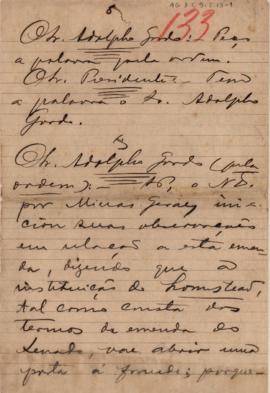 5
133
O Sr. Adolpho Gordo: Peço
a palavra pela ordem.
O Sr. Presidente: — Tem
a palavra o Sr. Adolpho
Gordo.
O Sr. Adolpho Gordo (pela
ordem): — o
por Minas Geraes ini-
ciou suas observações
em relação a esta emen-
da, dizendo que a
instituição do homestead,
tal como consta dos
termos da emenda do
Senado, vae abrir uma
porta á fraude; porque-